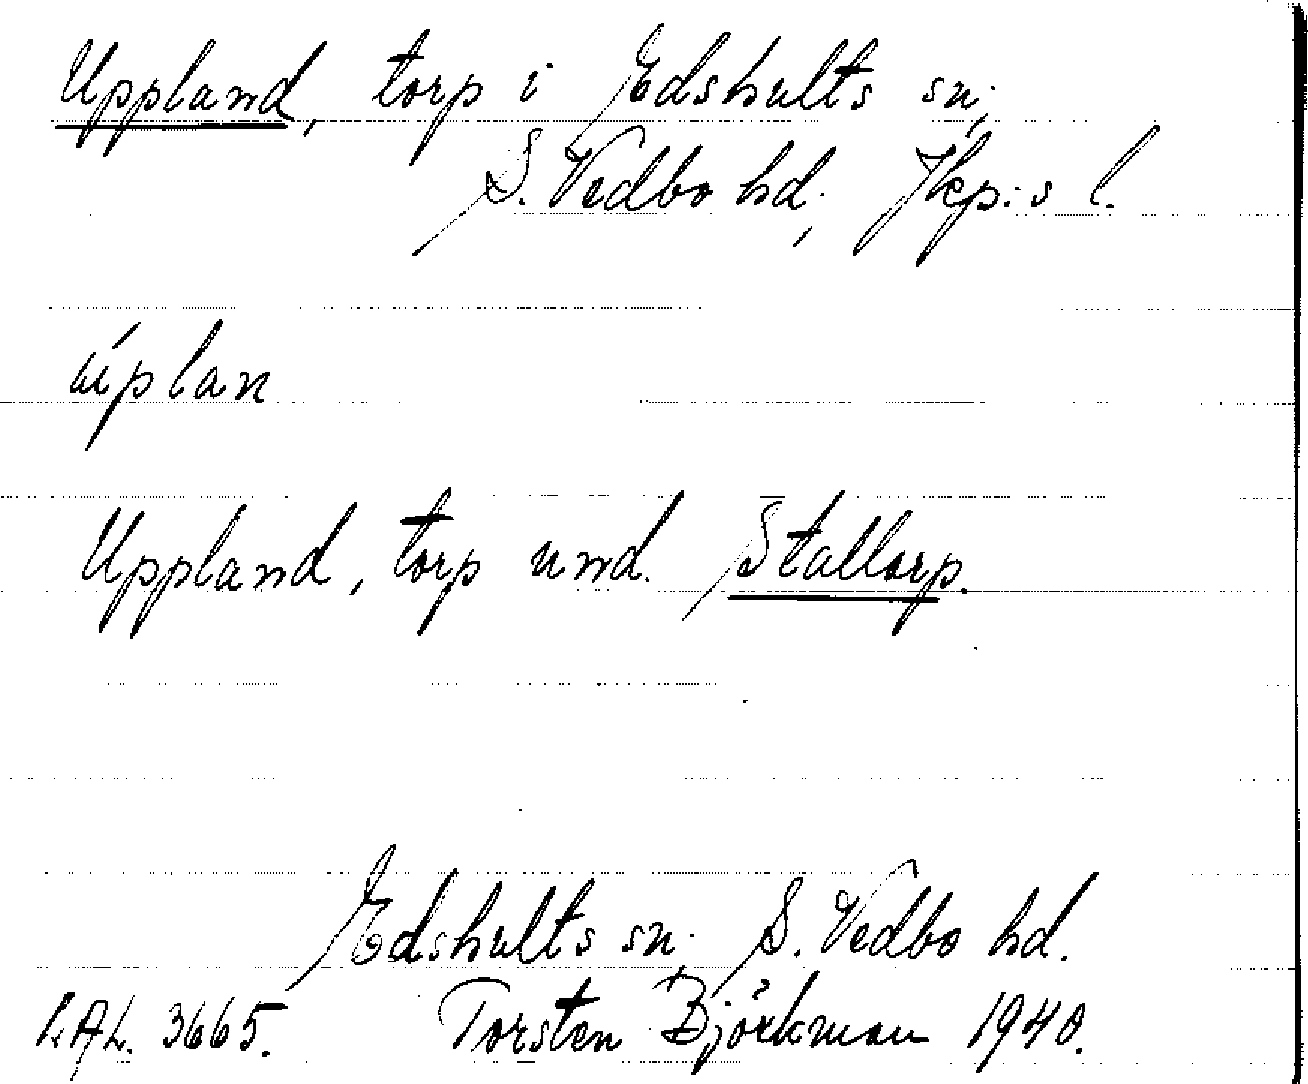 Uppland, torp i Edshults sn,
S. Vedbo hd, Jkp:s l.
úplan
Uppland, torp und. Stallorp.
Edshults sn, S. Vedbo hd.
L.A.L. 3665. Torsten Björkman 1940.